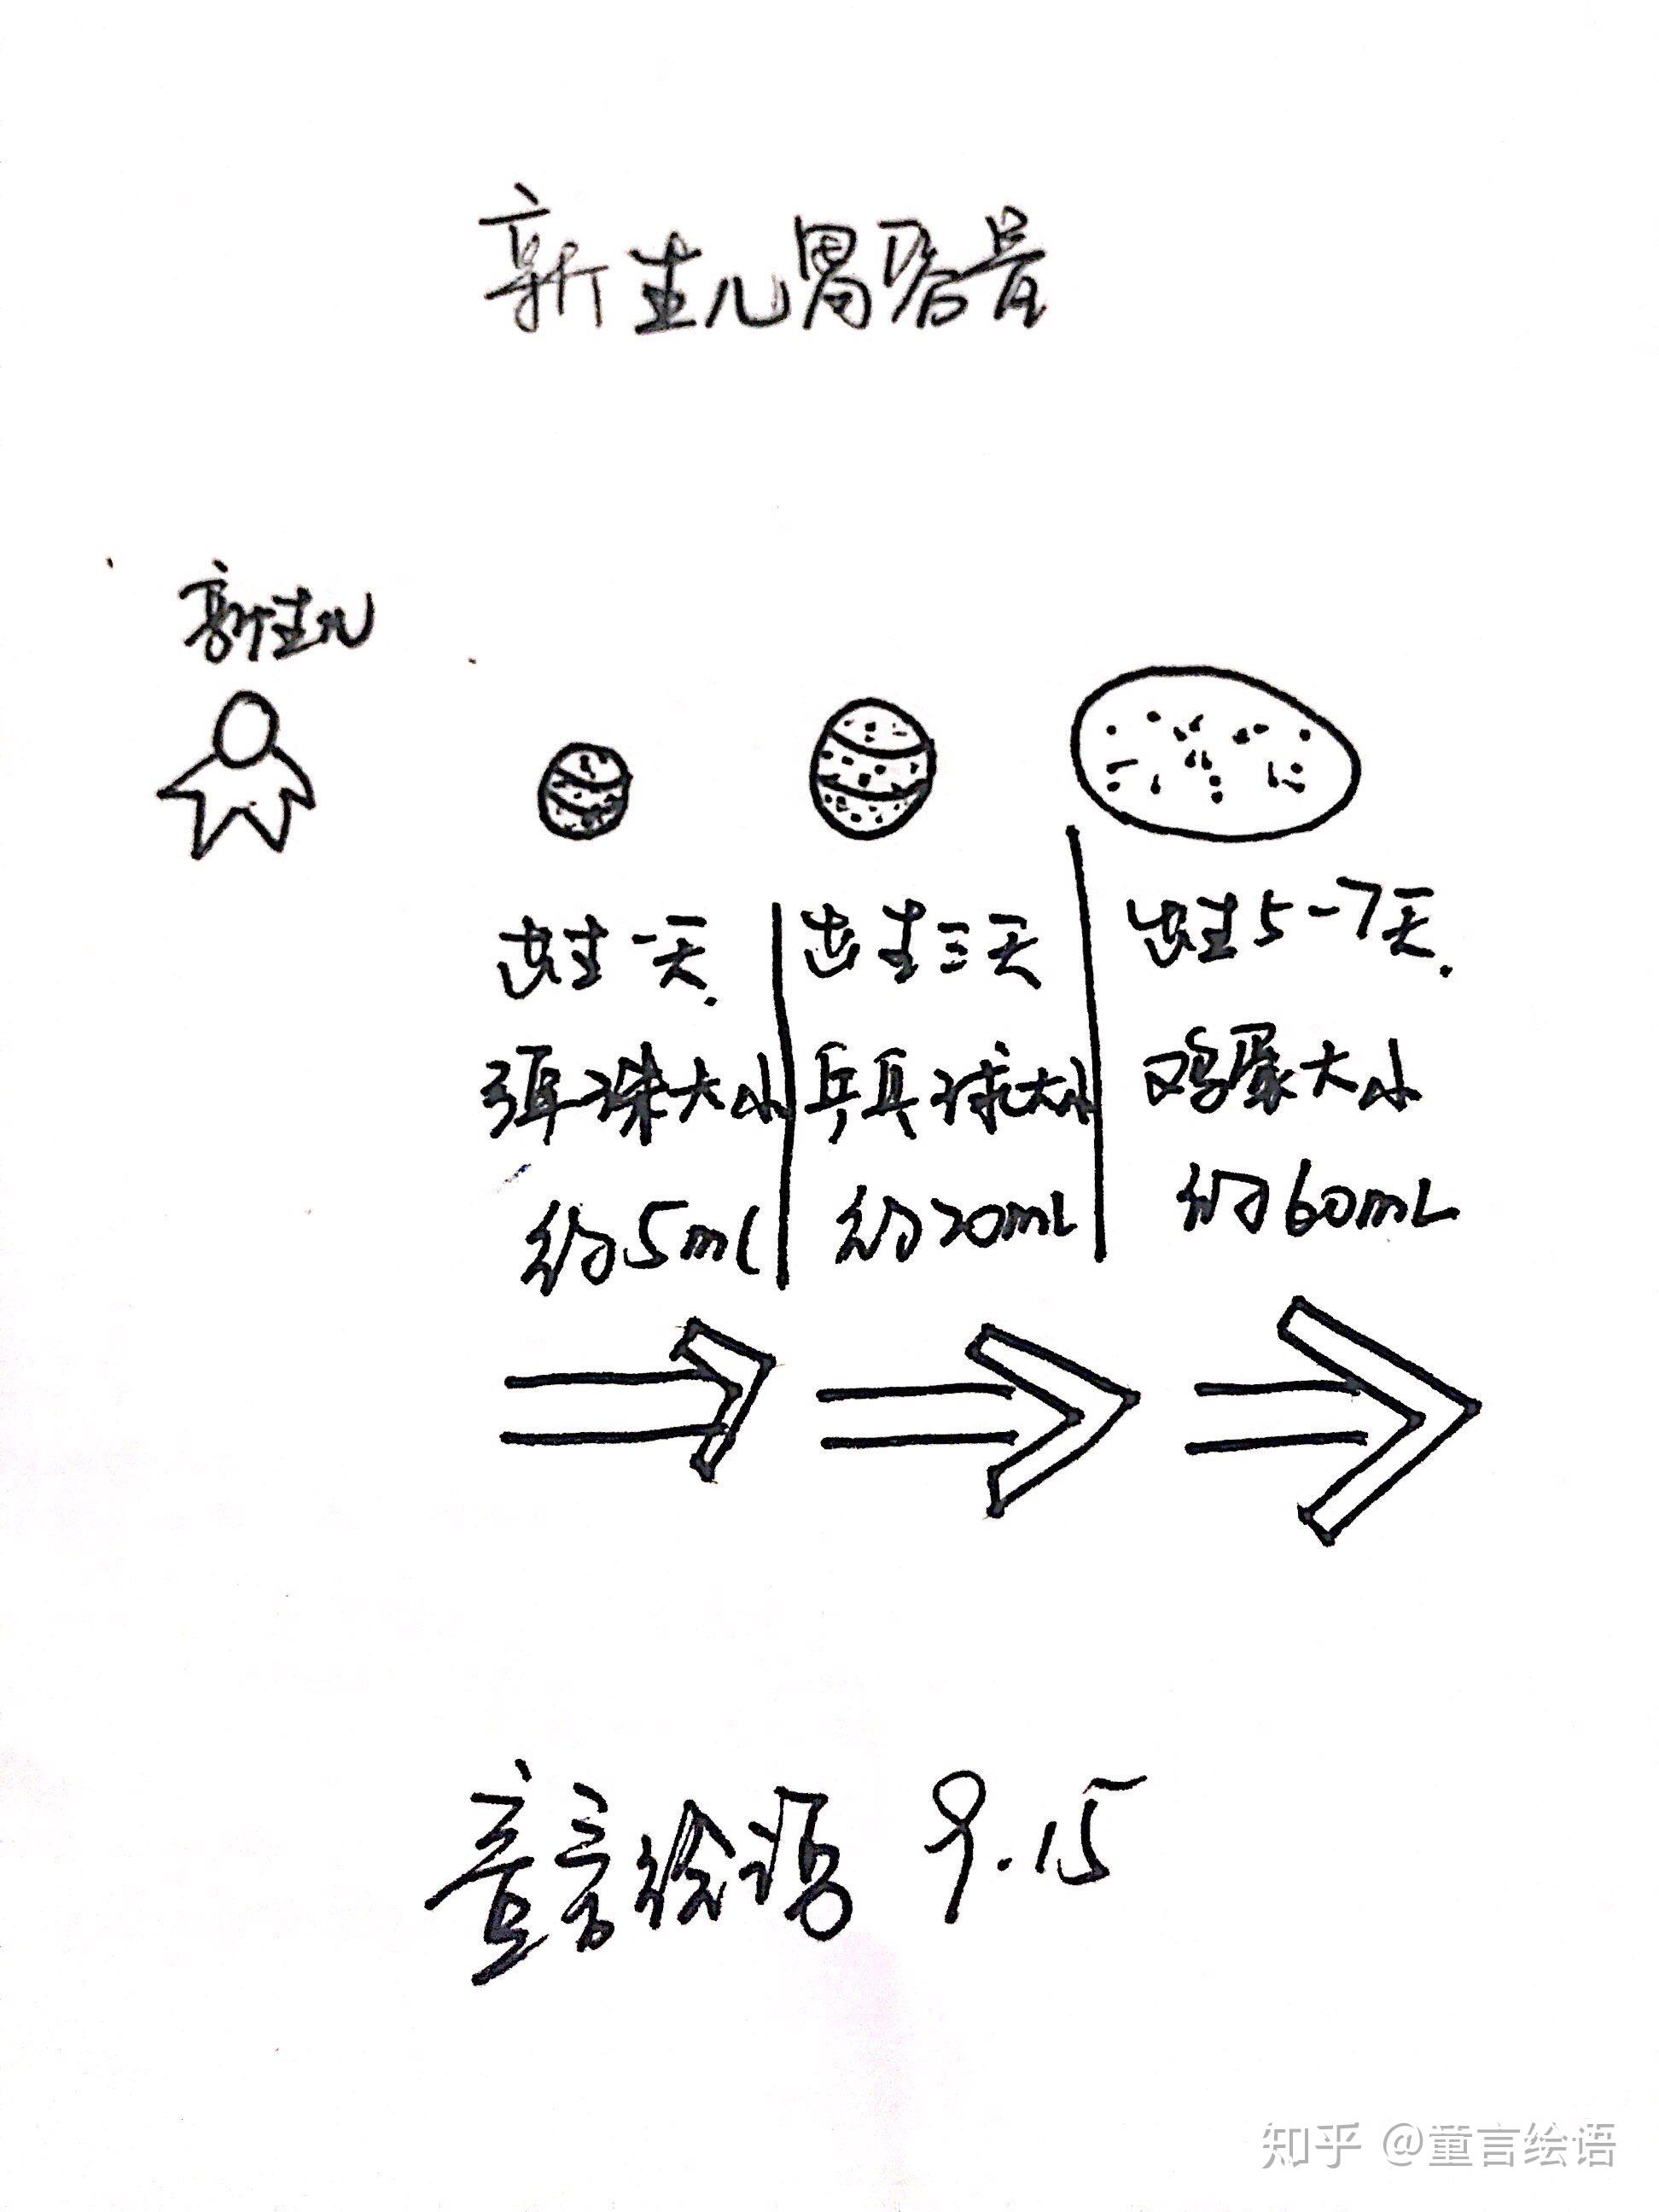 新生儿胃容量
新生儿
出生一天.
弹珠大小
约5ml
出生三天
乒乓球大小
约20mL
出生5-7天.
鸡蛋大小
约60mL
童言绘语 9.15
知乎 @童言绘语